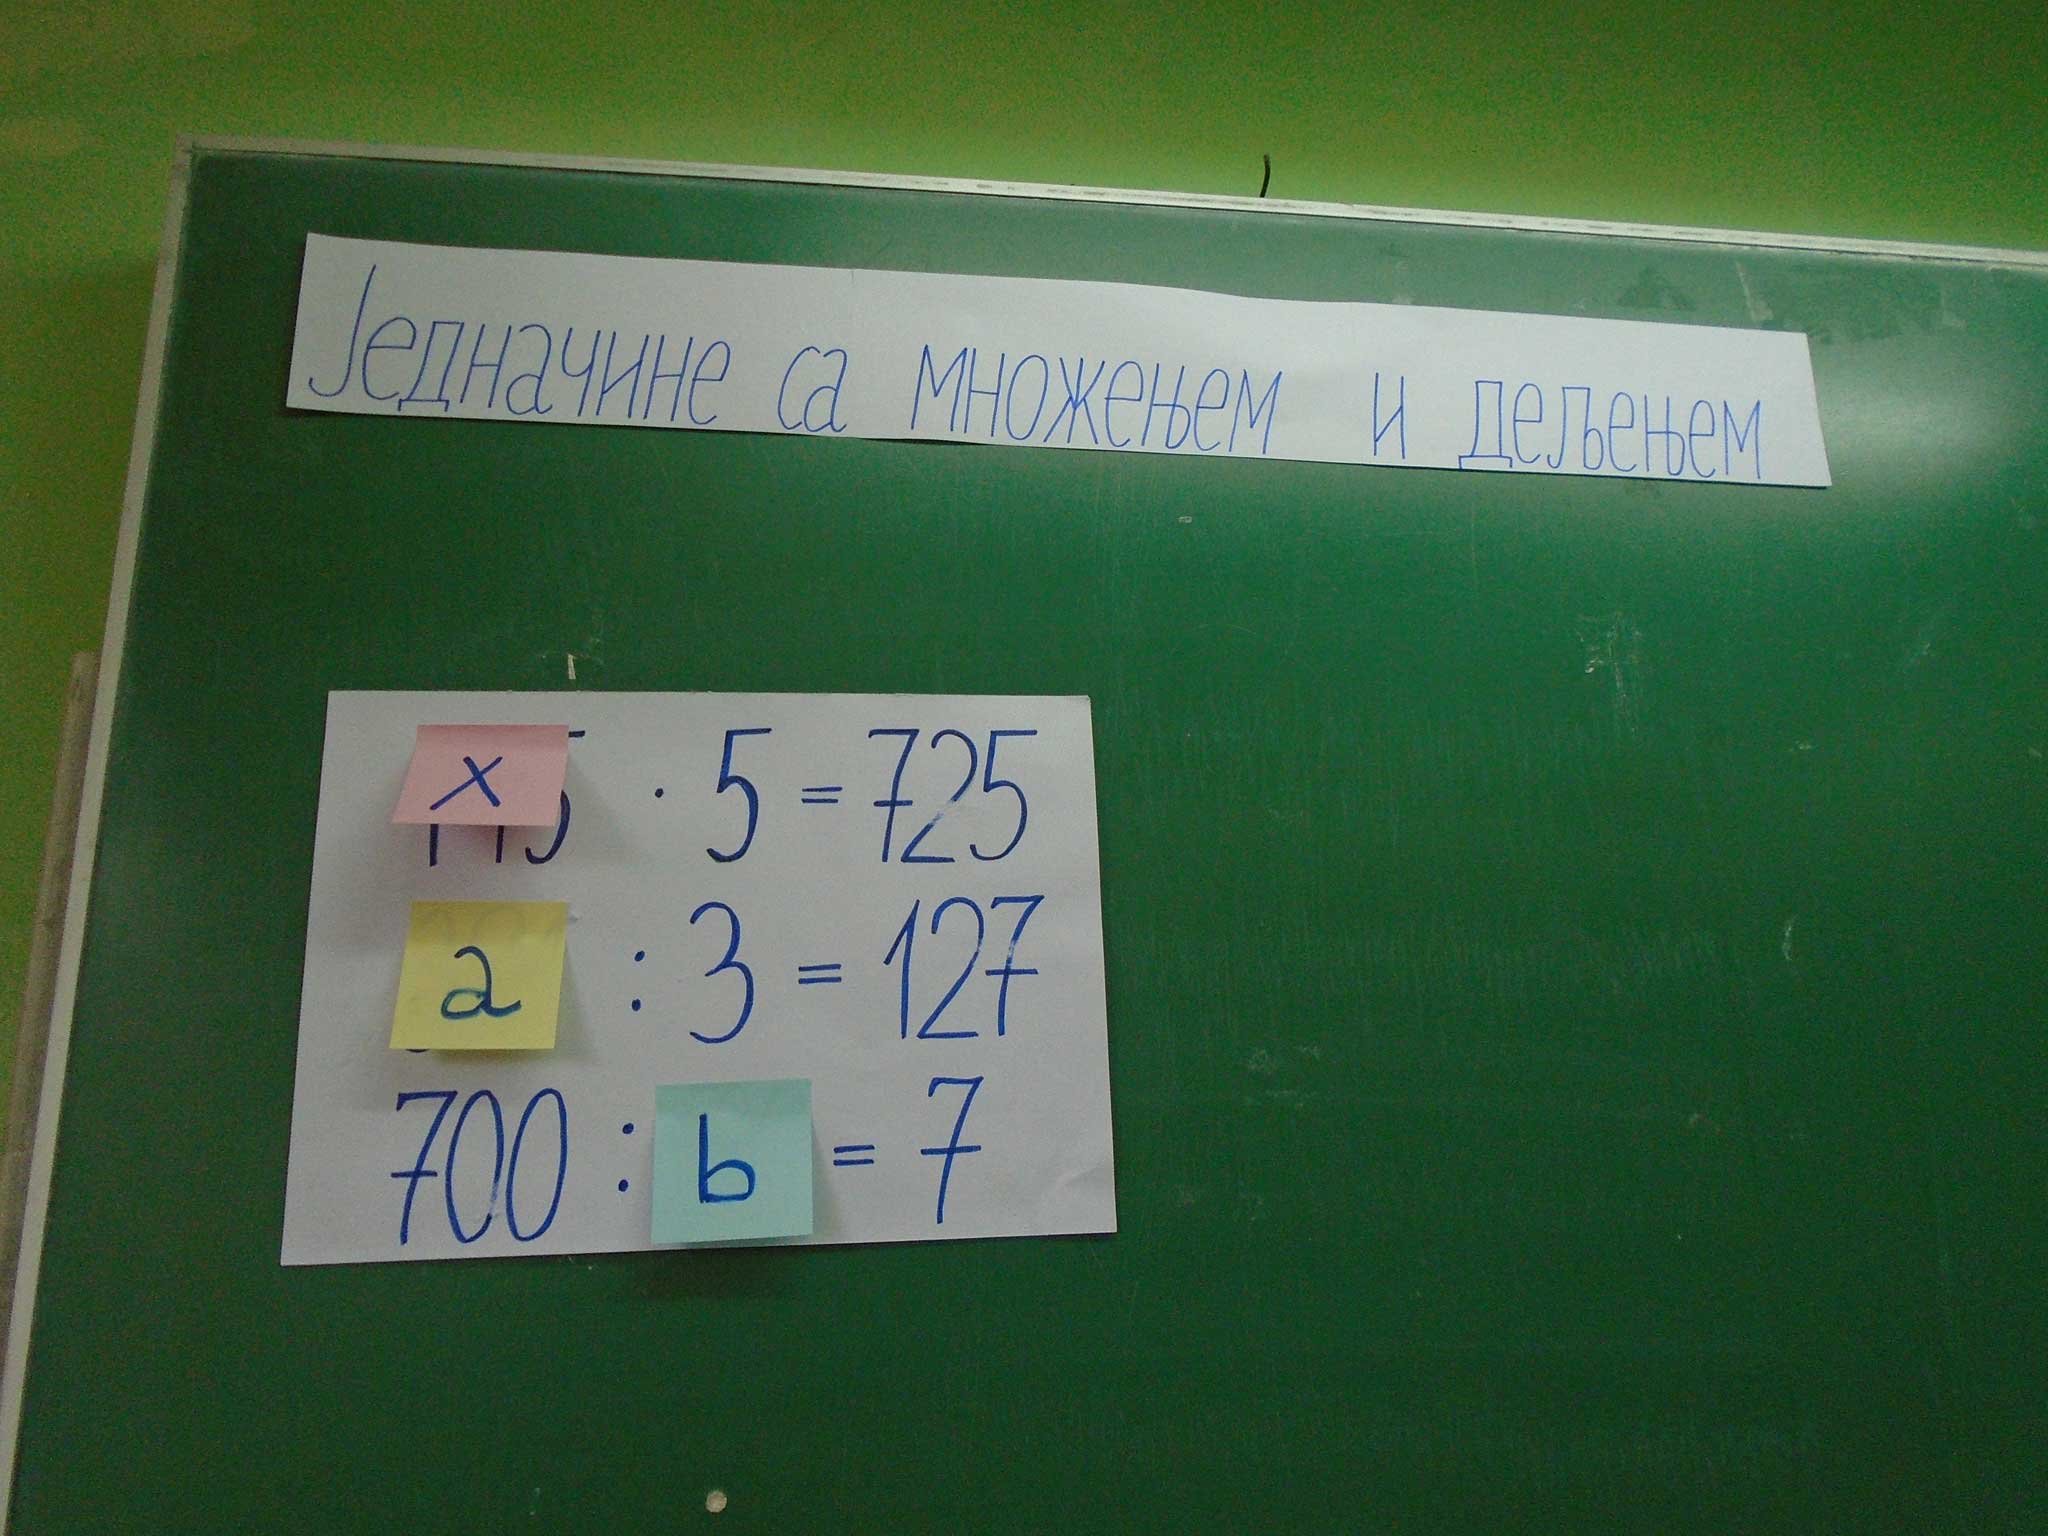 Једначине са множењем и дељењем
x · 5 = 725
a : 3 = 127
700 : b = 7